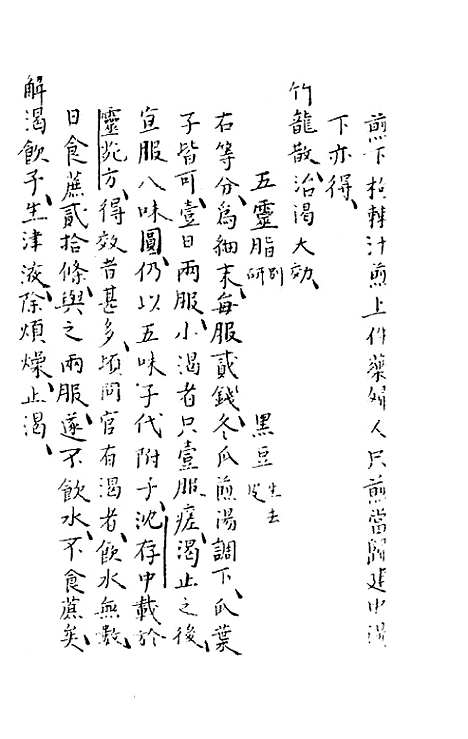 煎下拉車汁煎上件藥婦人只煎當歸建中湯
下亦得
竹龍散治渴大効
五靈脂別研 黑豆生去皮
右等分為細末每服貳錢冬瓜煎湯調下瓜葉
子皆可壹日兩服小渴者只壹服瘥渴止之後
宜服八味圓仍以五味子代附子沈存中載於
靈苑方得效者甚多頃間官有渴者飲水無數
日食蔗貳拾條與之兩服遂不飲水不食蔗矣
解渴飲子生津液除煩燥止渴